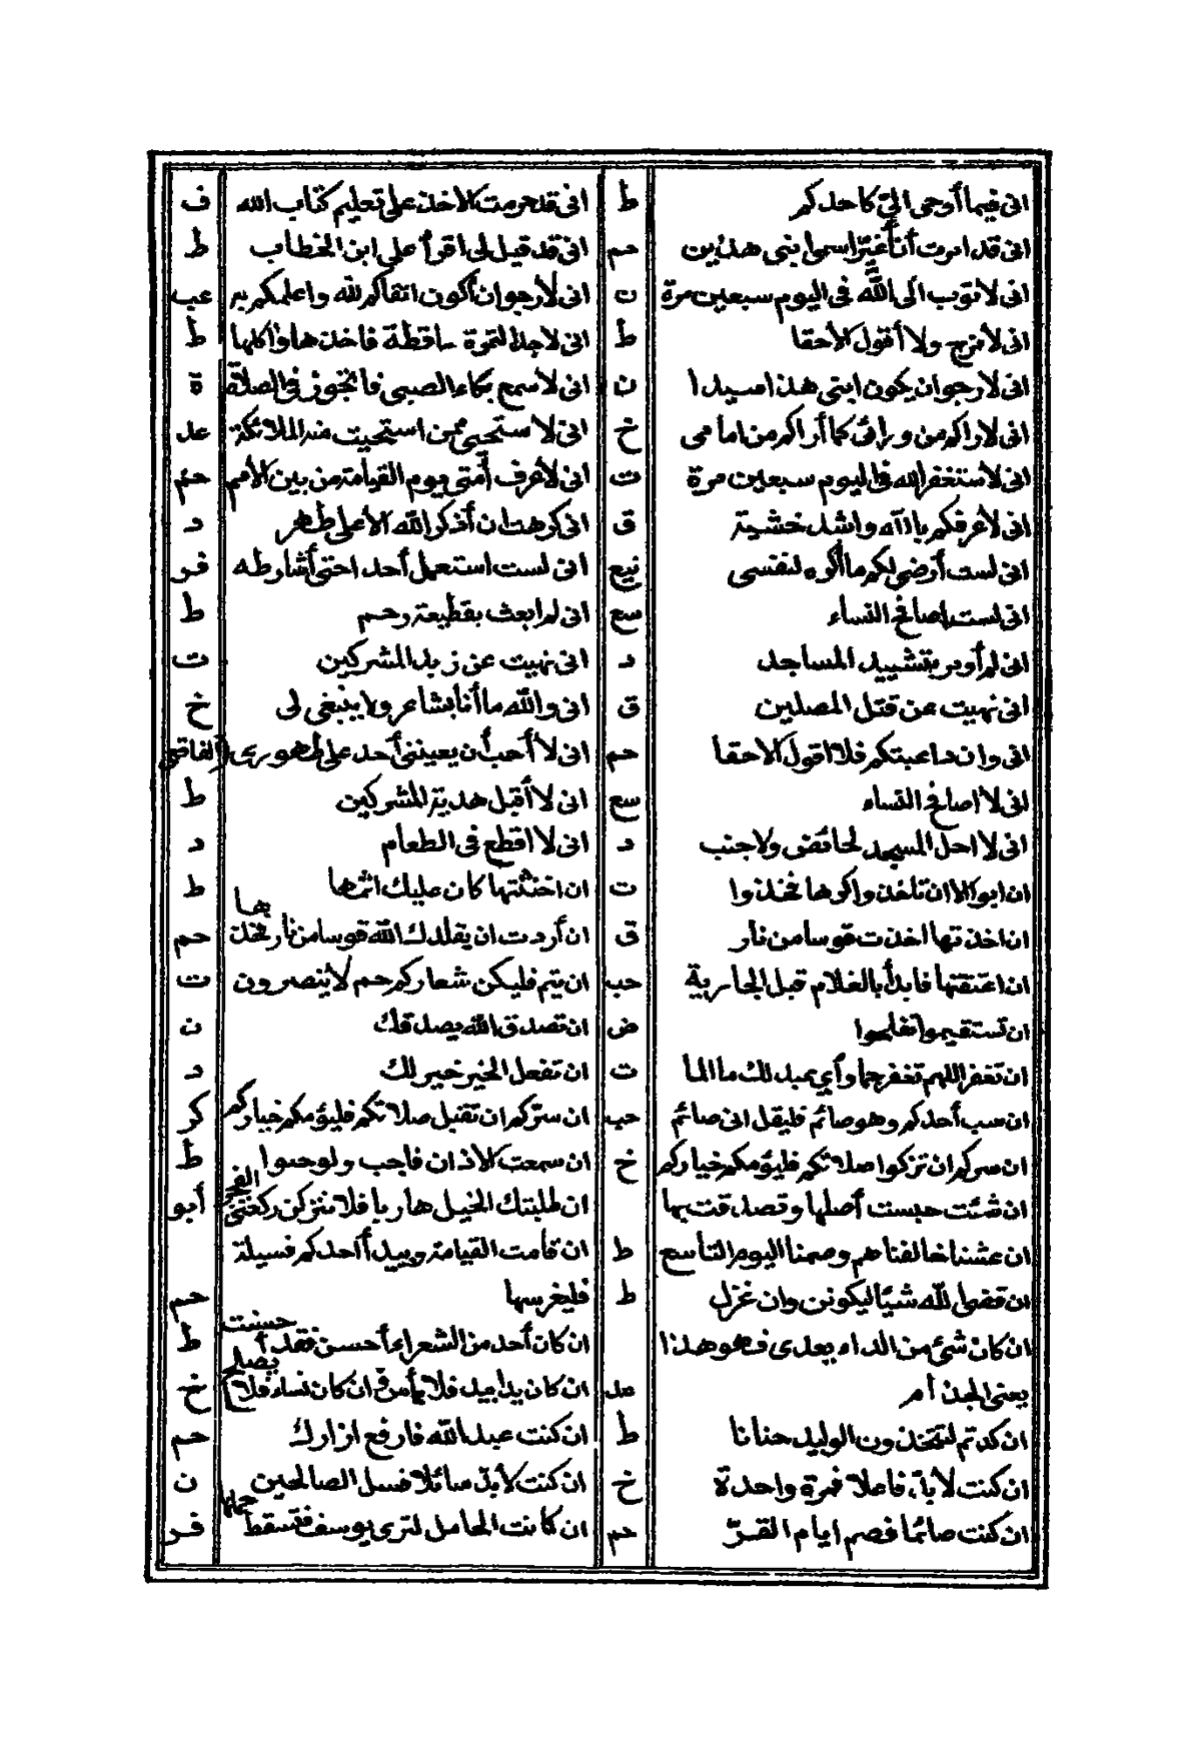 انى فيما أوحى الىّ كاحدكم ط
انى قد امرت أن أغيّر اسموا بنى هذين حم
انى لاتوب الى اللّه فى اليوم سبعين مرة ن
انى لأمزح ولا أقول الأحقا ط
انى لارجو ان يكون ابنى هذا سيدا ن
انى لاراكم من ورائى كما أراكم من امامى خ
انى لاستغفر الله فى اليوم سبعين مرة ت
انى لاعرفكم بالله واشد خشية ق
انى لست أرضى لكم ما أكره لنفسى نيع
انى لست اصافح النساء سع
انى لم أومر بتشييد المساجد د
انى نهيت عن قتل المصلين ق
انى وان داعبتكم فلا اقول الاحقا حم
انى لا اصافح النساء سع
انى لا احل المسجد لحائض ولا جنب د
ان ابوا الا ان تاخذوا كرها فخذوا ت
ان اخذتها اخذت قوسا من نار ق
ان اعتقتها فابدأ بالغلام قبل الجارية حب
ان تستقيموا تفلحوا ض
ان تغفر اللهم تغفر جما وأى عبد لك ما الما ت
ان سب أحدكم وهو صائم فليقل انى صائم حب
ان سركم ان تزكوا صلاتكم فليؤمكم خياركم خ
ان شئت حبست أصلها وتصدقت بها
ان عشنا خالفناهم وصمنا اليوم التاسع ط
ان قضى اللّه شيئا ليكونن وان عزل ط
ان كان شئ من الداء يعدى فهو هذا
يعنى الجذام عد
ان كدتم لتتخذون الوليد حنانا ط
ان كنت لا بد فاعلا فمرة واحدة خ
ان كنت صائما فصم ايام الغرّ حم
انى قد حرمت كلاخذ على تعليم كتاب الله ف
انى قد قيل لى اقرأ على ابن الخطاب ط
انى لأرجو ان أكون اتقاكم للّه واعلمكم به عب
انى لاجد التمرة ساقطة فاخذها واكلها ط
انى لاسمع بكاء الصبى فاتجوز فى الصلاة ة
انى لاستحيى ممن استحيت منه الملائكة عد
انى لأعرف أمتى يوم القيامة من بين الأمم حم
انى كرهت ان أذكر اللّه الأعلى طهر د
انى لست استعمل أحدا حتى أشارطه فر
انى لم ابعث بقطيعة رحم ط
انى نهيت عن زبد المشركين ت
انى واللّه ما أنا بشاعر ولا ينبغى لى خ
انى لا أحب أن يعيننى أحد على طهورى الفاقعى
انى لا أقبل هدية المشركين ط
انى لا اقطع فى الطعام د
ان اخنثتها كان عليك اثمها ط
ان أردت ان يقلدك اللّه قوسا من نار فخذها حم
ان يتم فليكن شعاركم حم لا ينصرون ت
ان تصدق اللّه يصدقك ن
ان تفعل الخير خير لك د
ان سرّكم ان تقبل صلاتكم فليؤمكم خياركم كر
ان سمعت كلاذان فاجب ولو حبوا ط
ان طلبتك الخيل هاربا فلا تتركن ركعتى الفجر أبو
ان قامت القيامة وبيد أحدكم فسيلة
فليغرسها حم
ان كان أحد من الشعراء أحسن فقد أحسنت ط
ان كان يدا بيد فلا بأس وان كان نساء فلا يصلح خ
ان كنت عبد اللّه فارفع ازارك حم
ان كنت لا بد سائلا فسل الصالحين ن
ان كانت الحامل لترى يوسف فتسقط حملها فر